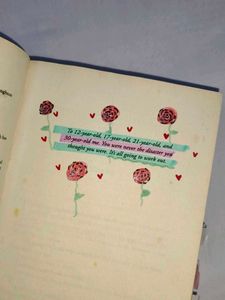 To 12-year-old, 17-year-old, 21-year-old, and
30-year-old me. You were never the disaster you
thought you were. It's all going to work out.